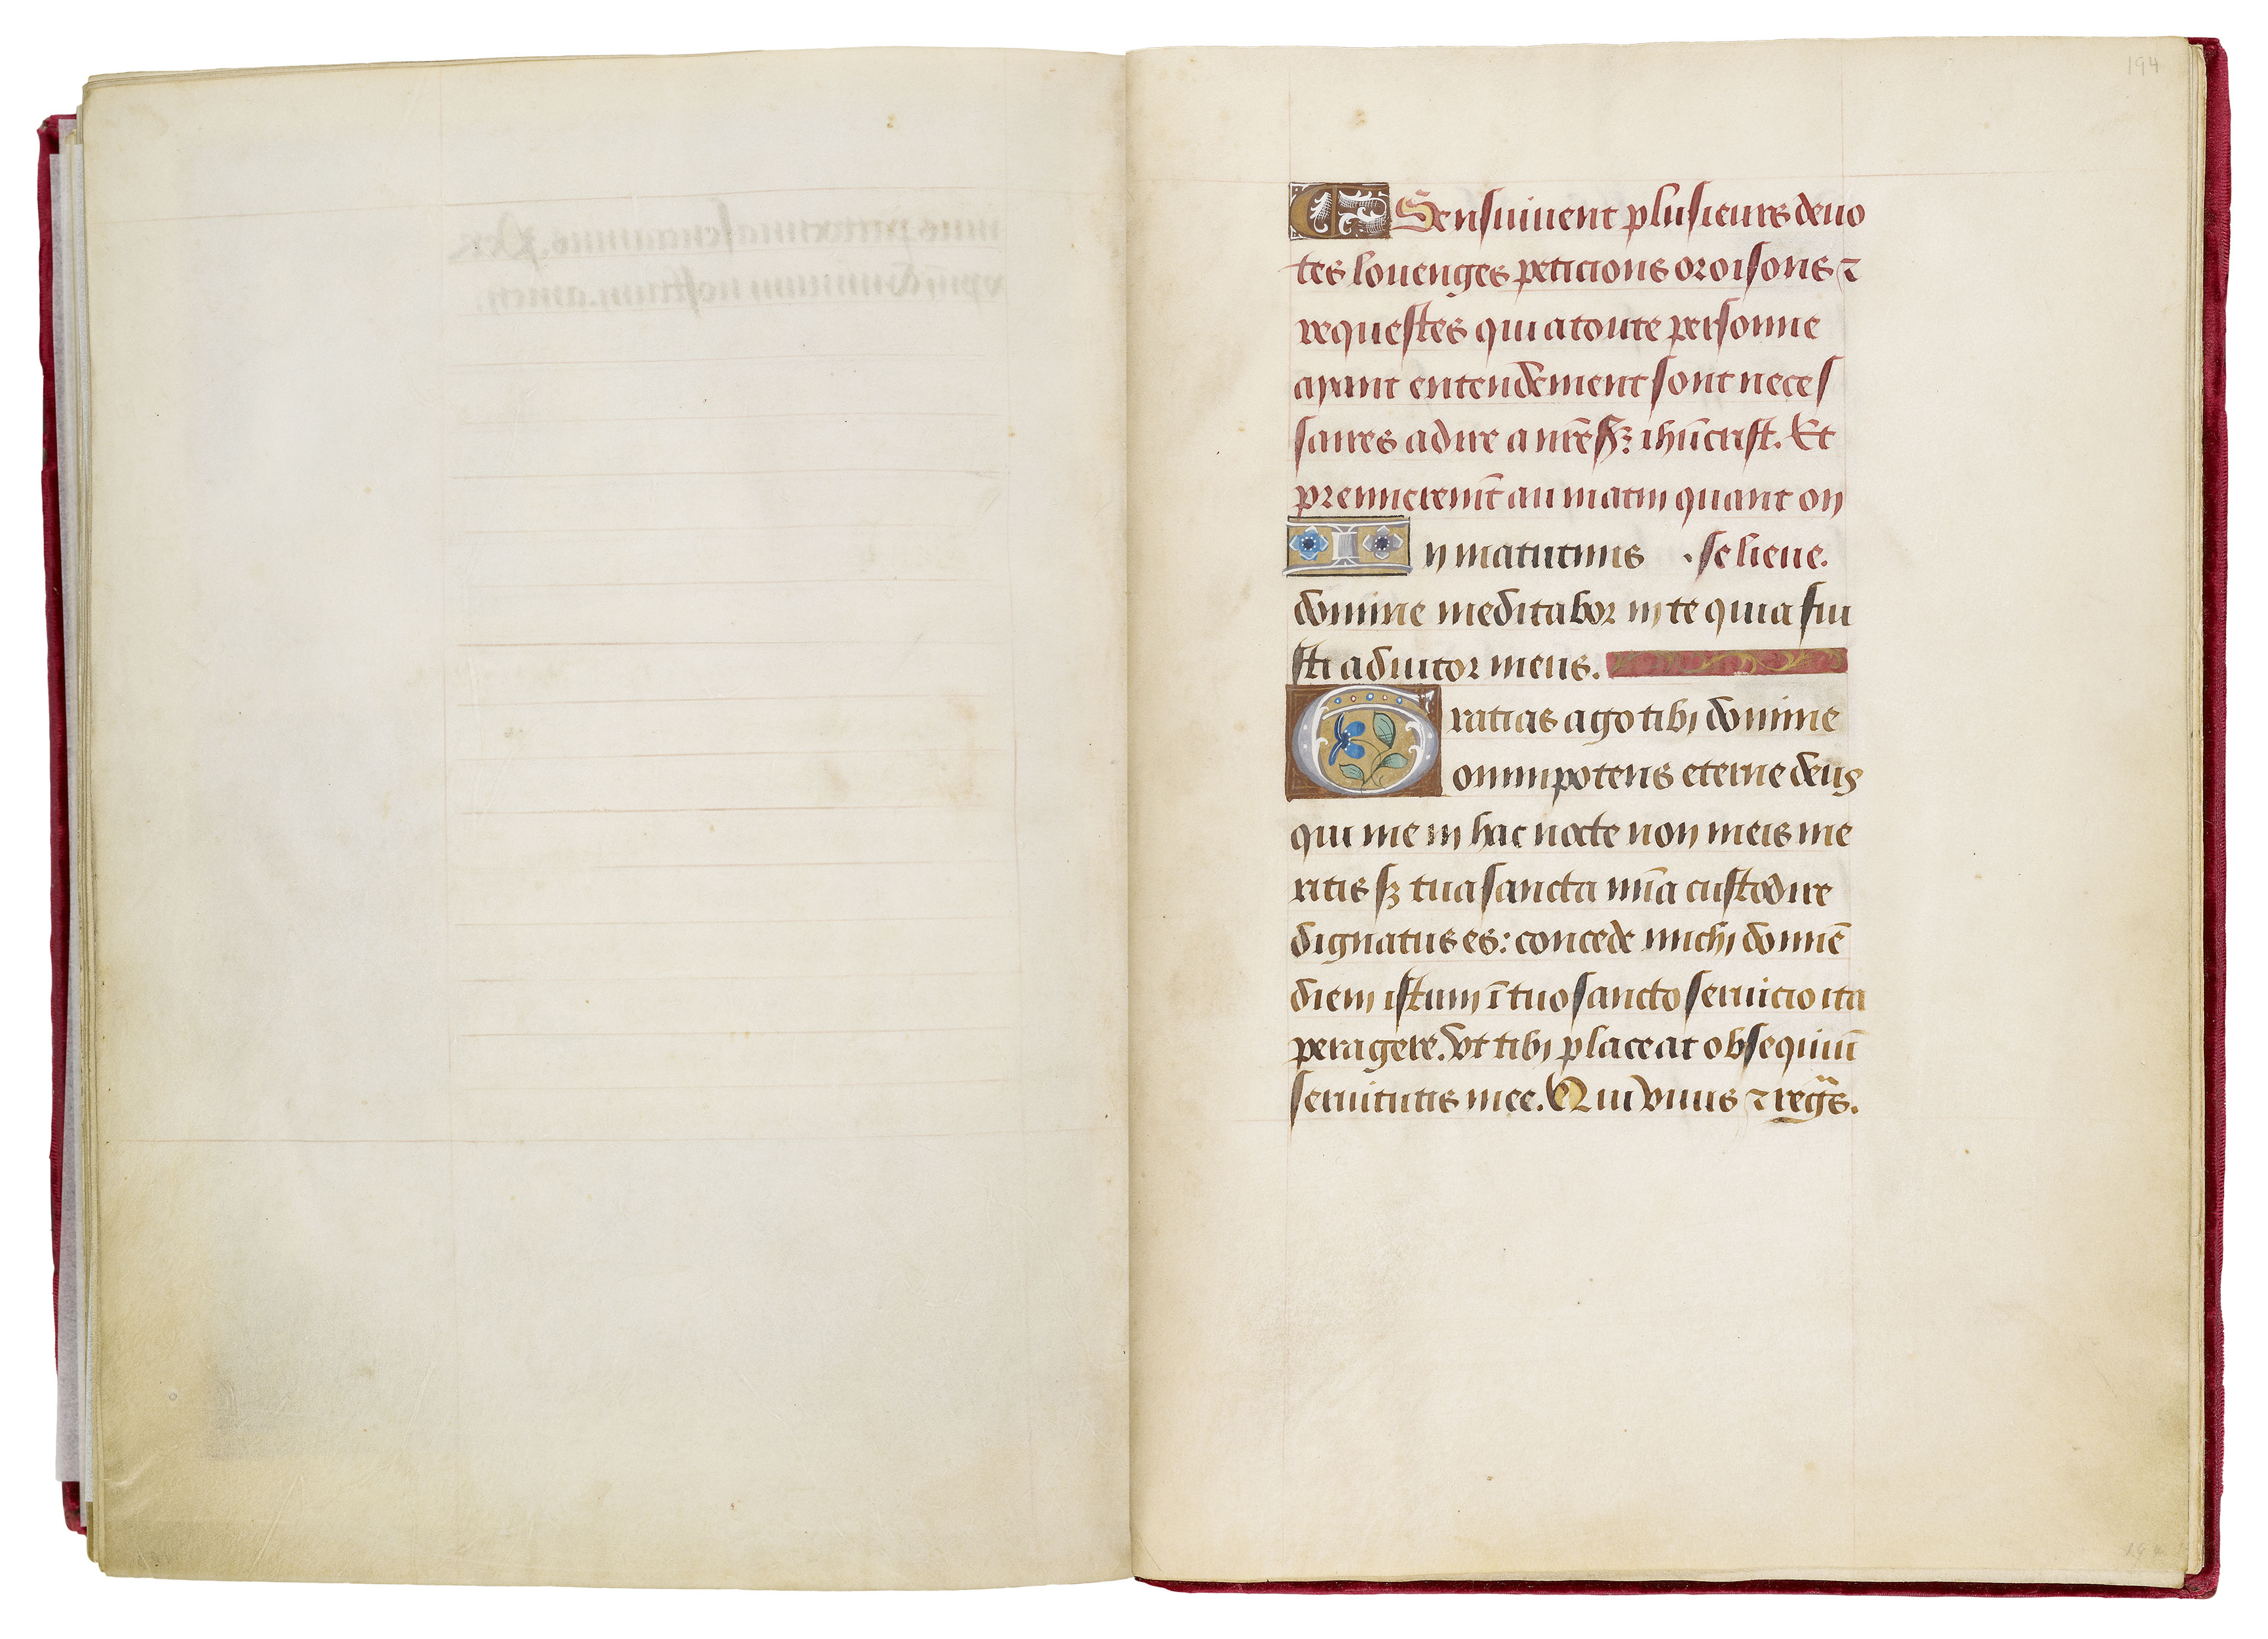 194
C Sensuiuent plusieurs deuo
tes louenges peticions oroisons ⁊
requestes qui a toute personne
ayant entendement sont neces
saires a dire a nr̃e sꝛ̃ ihũcrist. Et
premieremt̃ au matin quant on
In matutinis · se lieue.
domine meditabor in te quia fui
sti adiutor meus.
Gratias ago tibi domine
omnipotens eterne deus
qui me in hac nocte non meis me
ritis sꝫ tua sancta mĩa custodire
dignatus es: concede michi domnẽ
diem istum ĩ tuo sancto seruicio ita
peragere. vt tibi placeat obsequiũ
seruitutis mee. Qui viuis ⁊ reg̃s.